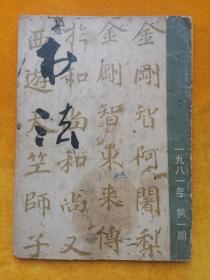 书法
金剛智阿闍梨
金剛智東來傳
扵和尚和尚又
西遊天竺師子
一九八一年 第一期